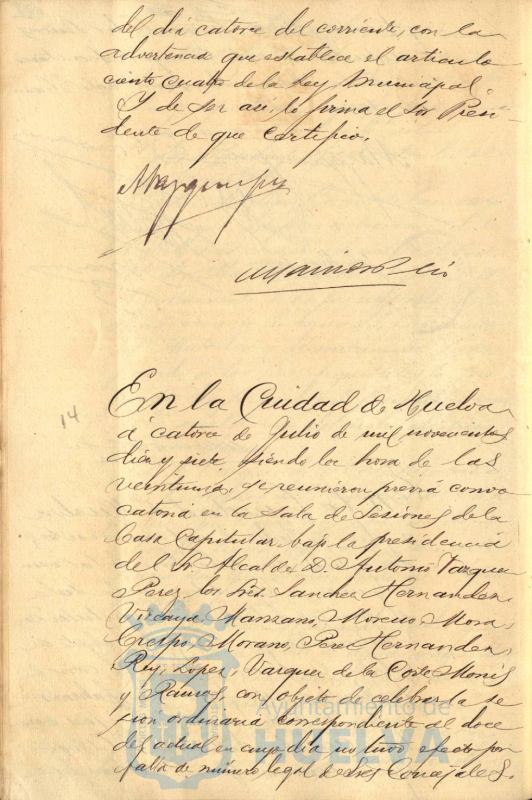 del dia catorce del corriente, con la
advertencia que establece el articulo
ciento cuatro de la Ley Municipal.
Y de ser asi, lo firma el Sor Presi-
dente de que certifico.
14
En la Ciudad de Huelva
á catorce de Julio de mil novecientos
diez y siete, siendo la hora de las
veintiuna, se reunieron previa convo
catoria en la Sala de Sesiones de la
Casa Capitular bajo la presidencia
del Sr. Alcalde D. Antonio Vazquez
Perez los Sres. Sanchez Hernandez,
Vizcaya, Manzano, Moreno, Mora,
Crespo, Morano, Perez Hernandez,
Rey, Lopez, Vazquez de la Corte, Monis
y Ramos, con objeto de celebrar la se
sion ordinaria correspondiente al doce
del actual en cuyo dia no tuvo efecto por
falta de número legal de Sres Concejales.
Ayuntamiento de
HUELVA